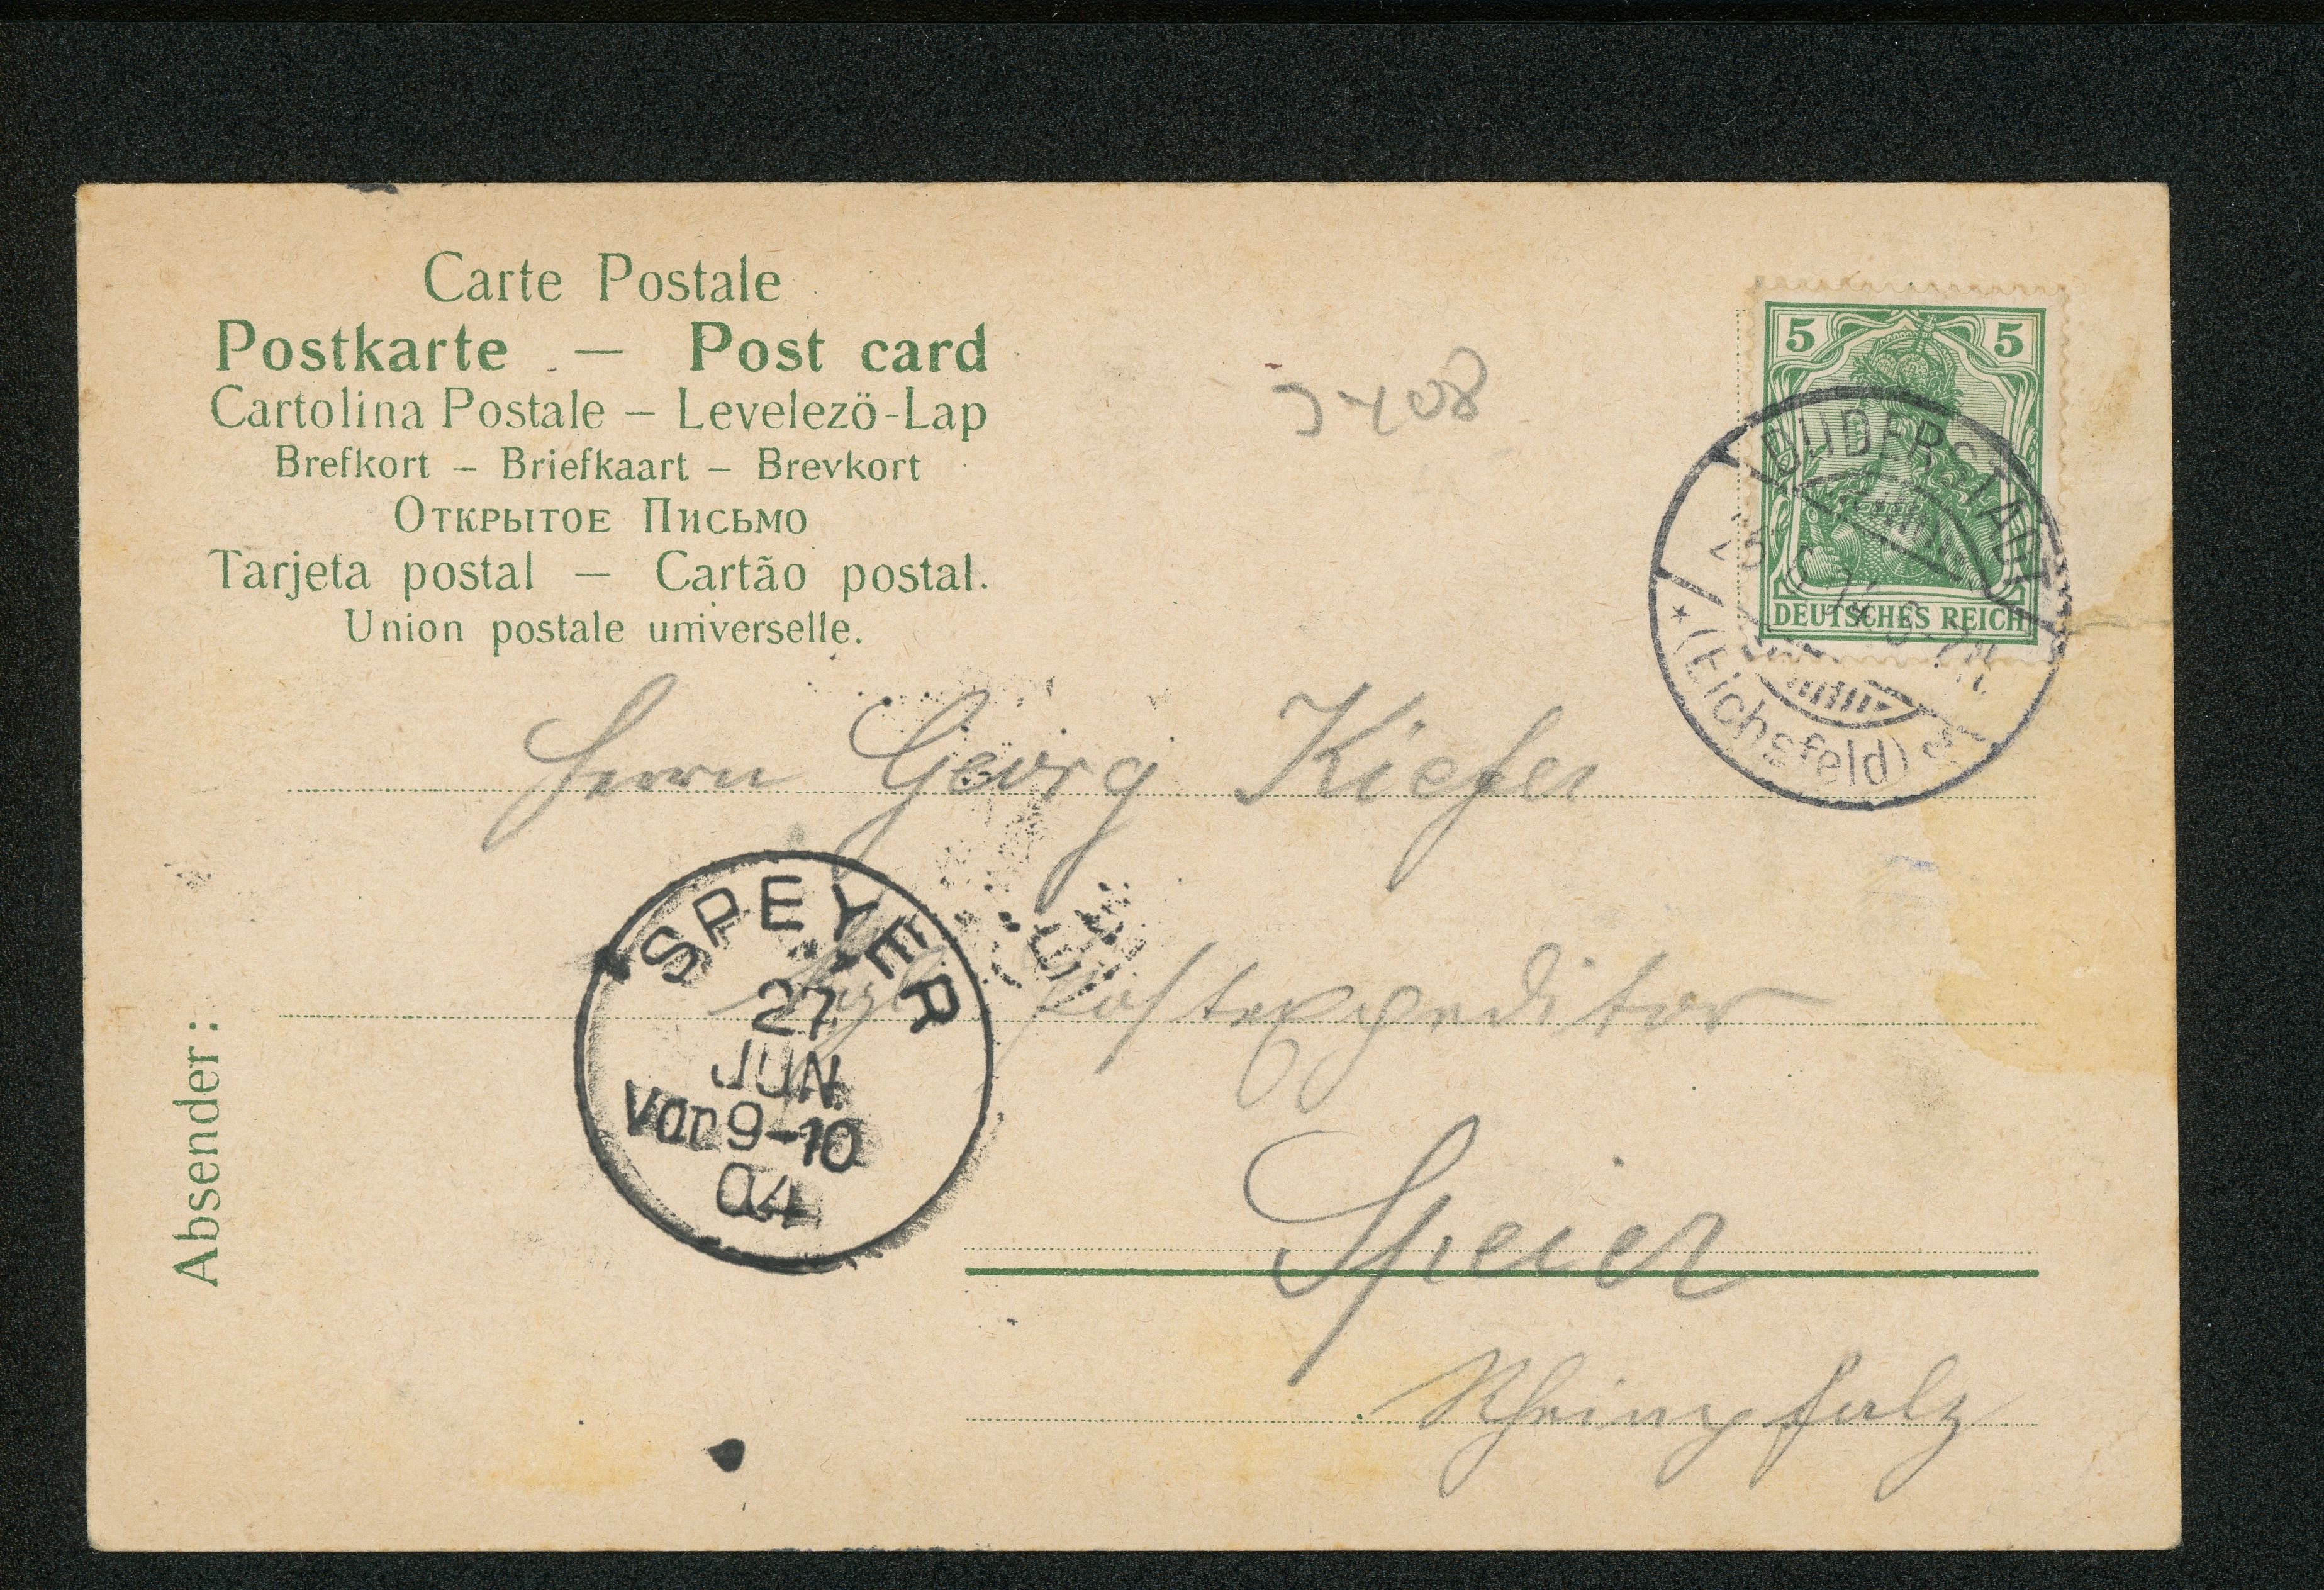 Carte Postale
Postkarte — Post card
Cartolina Postale — Levelezö-Lap
Brefkort — Briefkaart — Brevkort
Открытое Письмо
Tarjeta postal — Cartão postal.
Union postale universelle.
5 5
DEUTSCHES REICH
DUDERSTADT
* (Eichsfeld)
Herrn Georg Kiefer
Postexpeditor
Speier
Rheinpfalz
SPEYER
27
JUN
Vor 9-10
04
Absender: